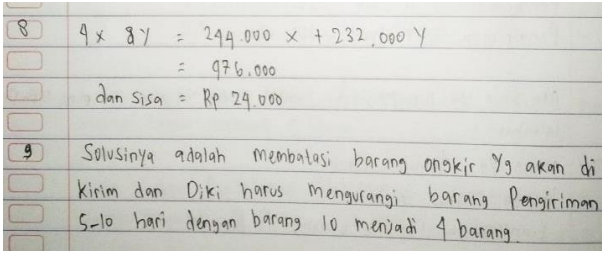 8 4x 8y = 244.000 x + 232.000 y
= 976.000
dan sisa = Rp 24.000
9 Solusinya adalah membatasi barang ongkir yg akan di
kirim dan Diki harus mengurangi barang Pengiriman
5-10 hari dengan barang 10 menjadi 4 barang.